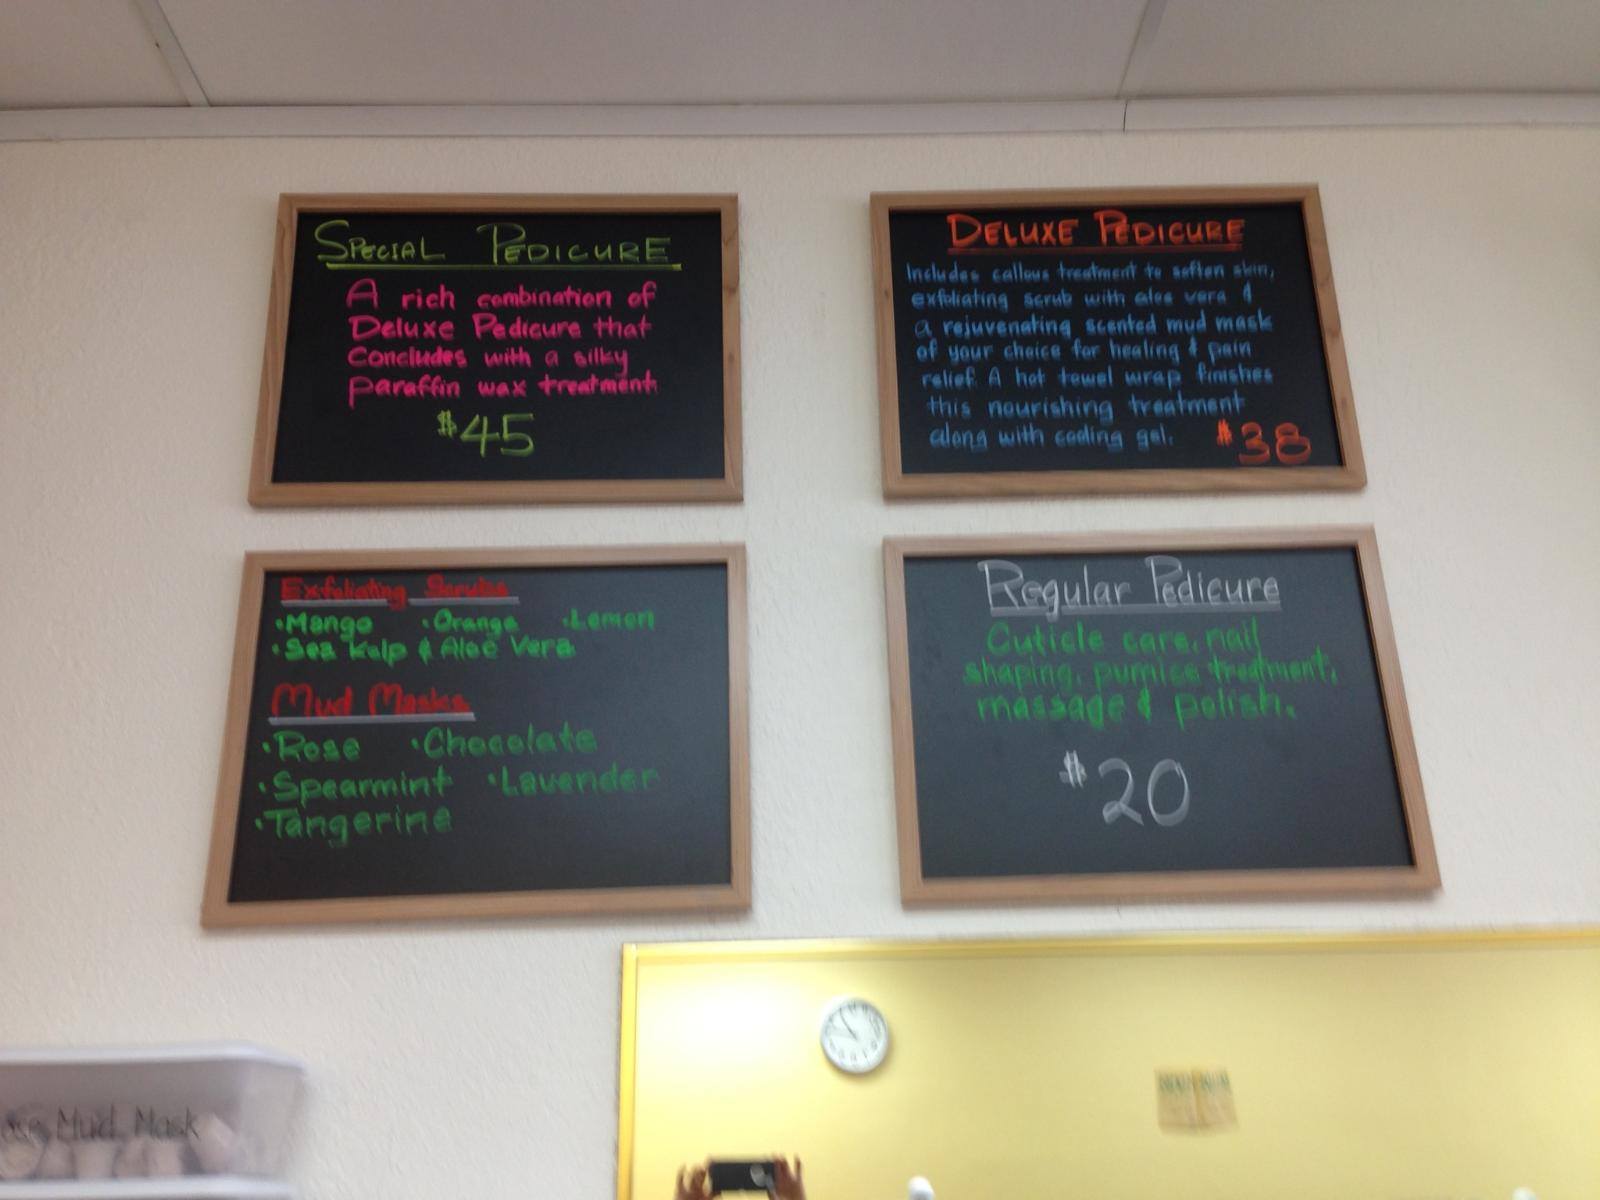 SPECIAL PEDICURE
A rich combination of
Deluxe Pedicure that
Concludes with a silky
paraffin wax treatment
$45
DELUXE PEDICURE
Includes callous treatment to soften skin,
exfoliating scrub with aloe vera &
a rejuvenating scented mud mask
of your choice for healing & pain
relief. A hot towel wrap finishes
this nourishing treatment
along with cooling gel.
$38
Exfoliating Scrubs
•Mango •Orange •Lemon
•Sea Kelp & Aloe Vera
Mud Masks
•Rose •Chocolate
•Spearmint •Lavender
•Tangerine
Regular Pedicure
Cuticle care, nail
shaping, pumice treatment,
massage & polish.
$20
Mud Mask